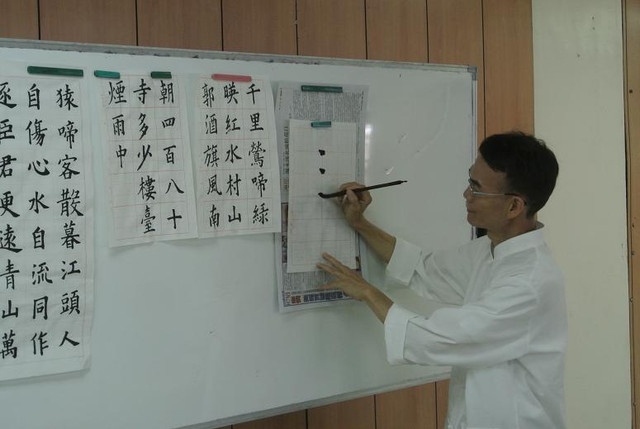 千里鶯啼綠
暎紅水村山
郭酒旗風南
朝四百八十
寺多少樓臺
煙雨中
猿啼客散暮江頭人
自傷心水自流同作
逐臣君更遠青山萬